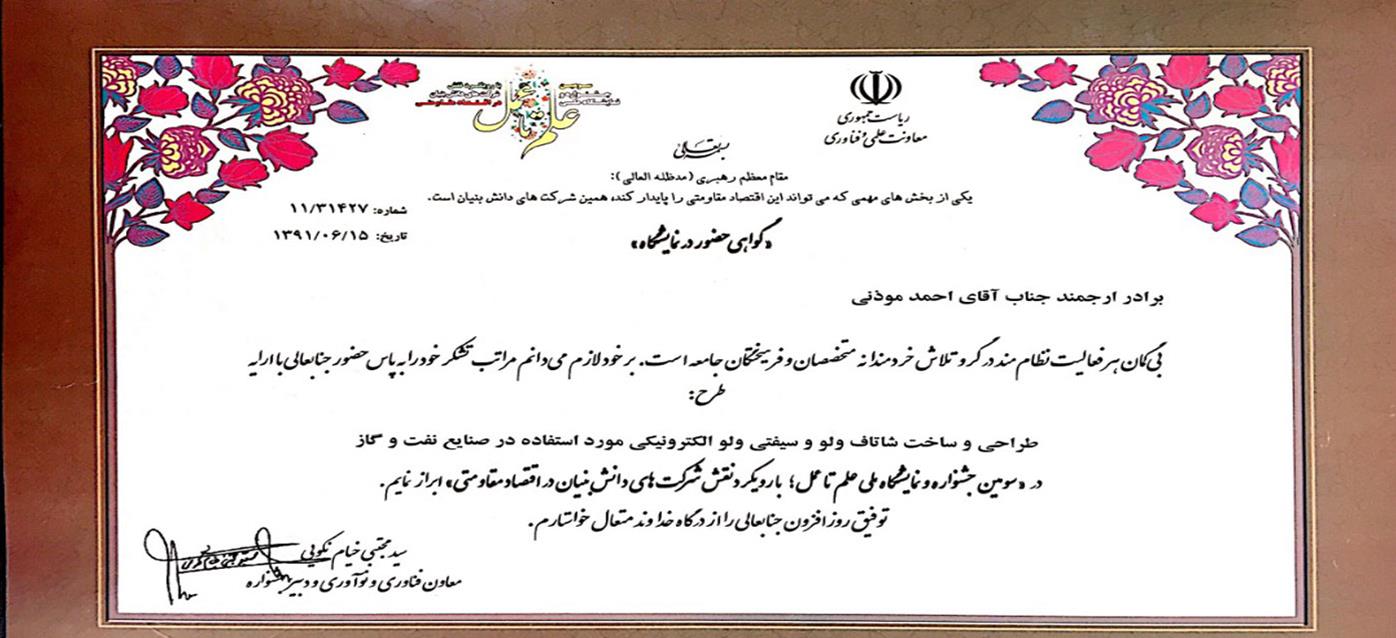 ریاست جمهوری
معاونت علمی و فناوری
سومین
جشنواره و
نمایشگاه ملی
علم تا عمل
با رویکرد نقش
شرکت های دانش بنیان
در اقتصاد مقاومتی
بسمه تعالی
مقام معظم رهبری (مدظله العالی):
یکی از بخش های مهمی که می تواند این اقتصاد مقاومتی را پایدار کند، همین شرکت های دانش بنیان است.
شماره: ۱۱/۳۱۴۲۷
تاریخ: ۱۳۹۱/۰۶/۱۵
«گواهی حضور در نمایشگاه»
برادر ارجمند جناب آقای احمد موذنی
بی گمان هر فعالیت نظام مند در گرو تلاش خردمندانه متخصصان و فرهیختگان جامعه است. بر خود لازم می دانم مراتب تشکر خود را به پاس حضور جنابعالی با ارایه
طرح:
طراحی و ساخت شاتاف ولو و سیفتی ولو الکترونیکی مورد استفاده در صنایع نفت و گاز
در «سومین جشنواره و نمایشگاه ملی علم تا عمل؛ با رویکرد نقش شرکت های دانش بنیان در اقتصاد مقاومتی» ابراز نمایم.
توفیق روز افزون جنابعالی را از درگاه خداوند متعال خواستارم.
سید مجتبی خیام نکویی
معاون فناوری و نوآوری و دبیر جشنواره